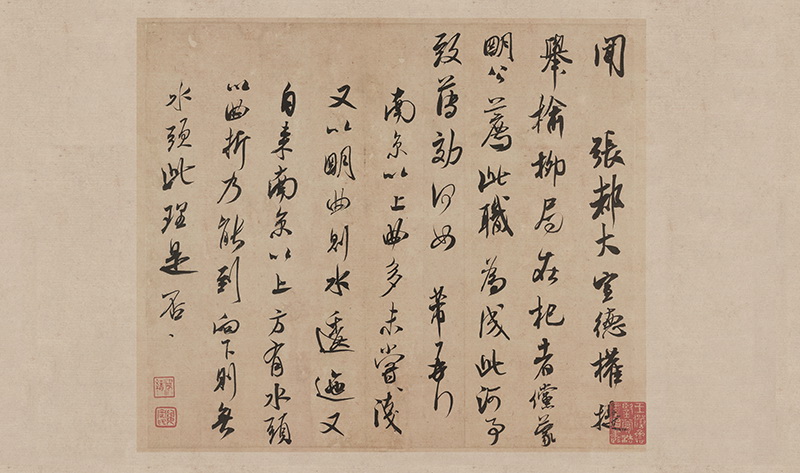 聞 張都大宣德權提
舉榆柳局在杞者儻蒙
明公薦此職為成此河事
致薄効何如 芾再行
南京以上曲多未嘗淺
又以明曲則水逶迤又
自來南京以上方有水頭
以曲折乃能到向下則無
水頭此理是否、